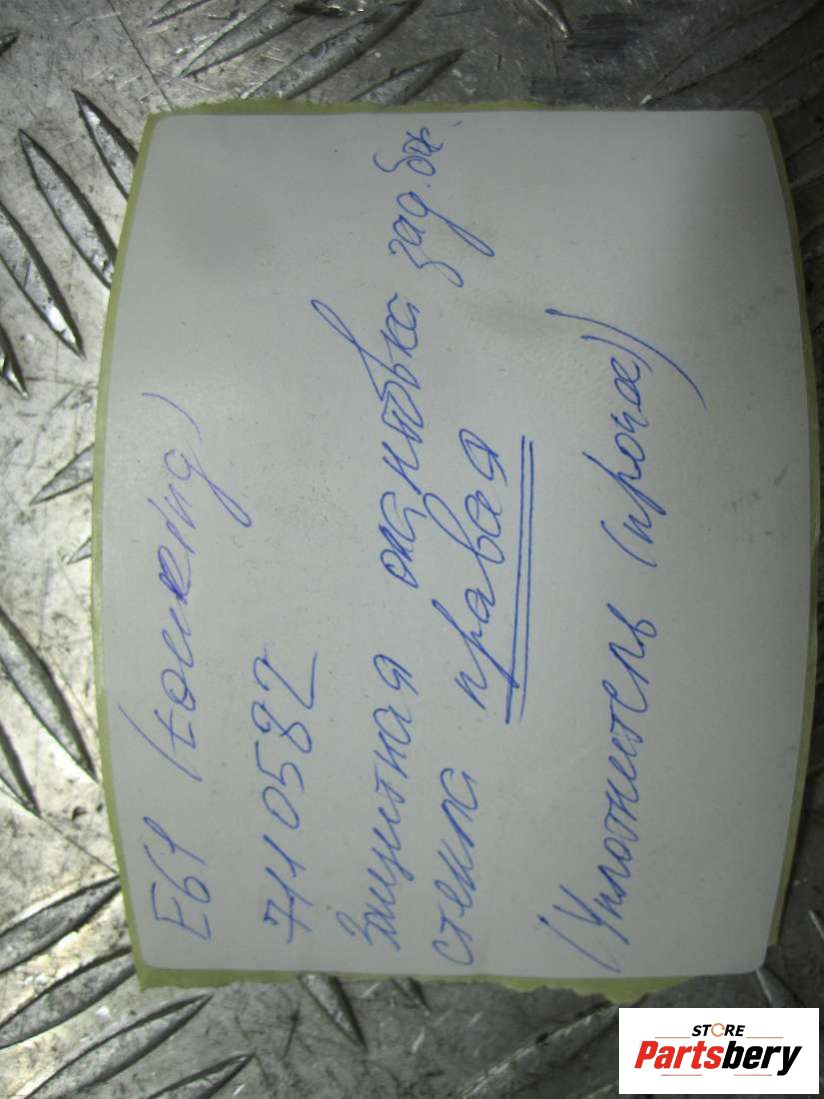 E61 (touring)
7110582
Защитная окантовка зад. бок.
стекла правая
(Уплотнитель (прочее))
STORE
Partsbery